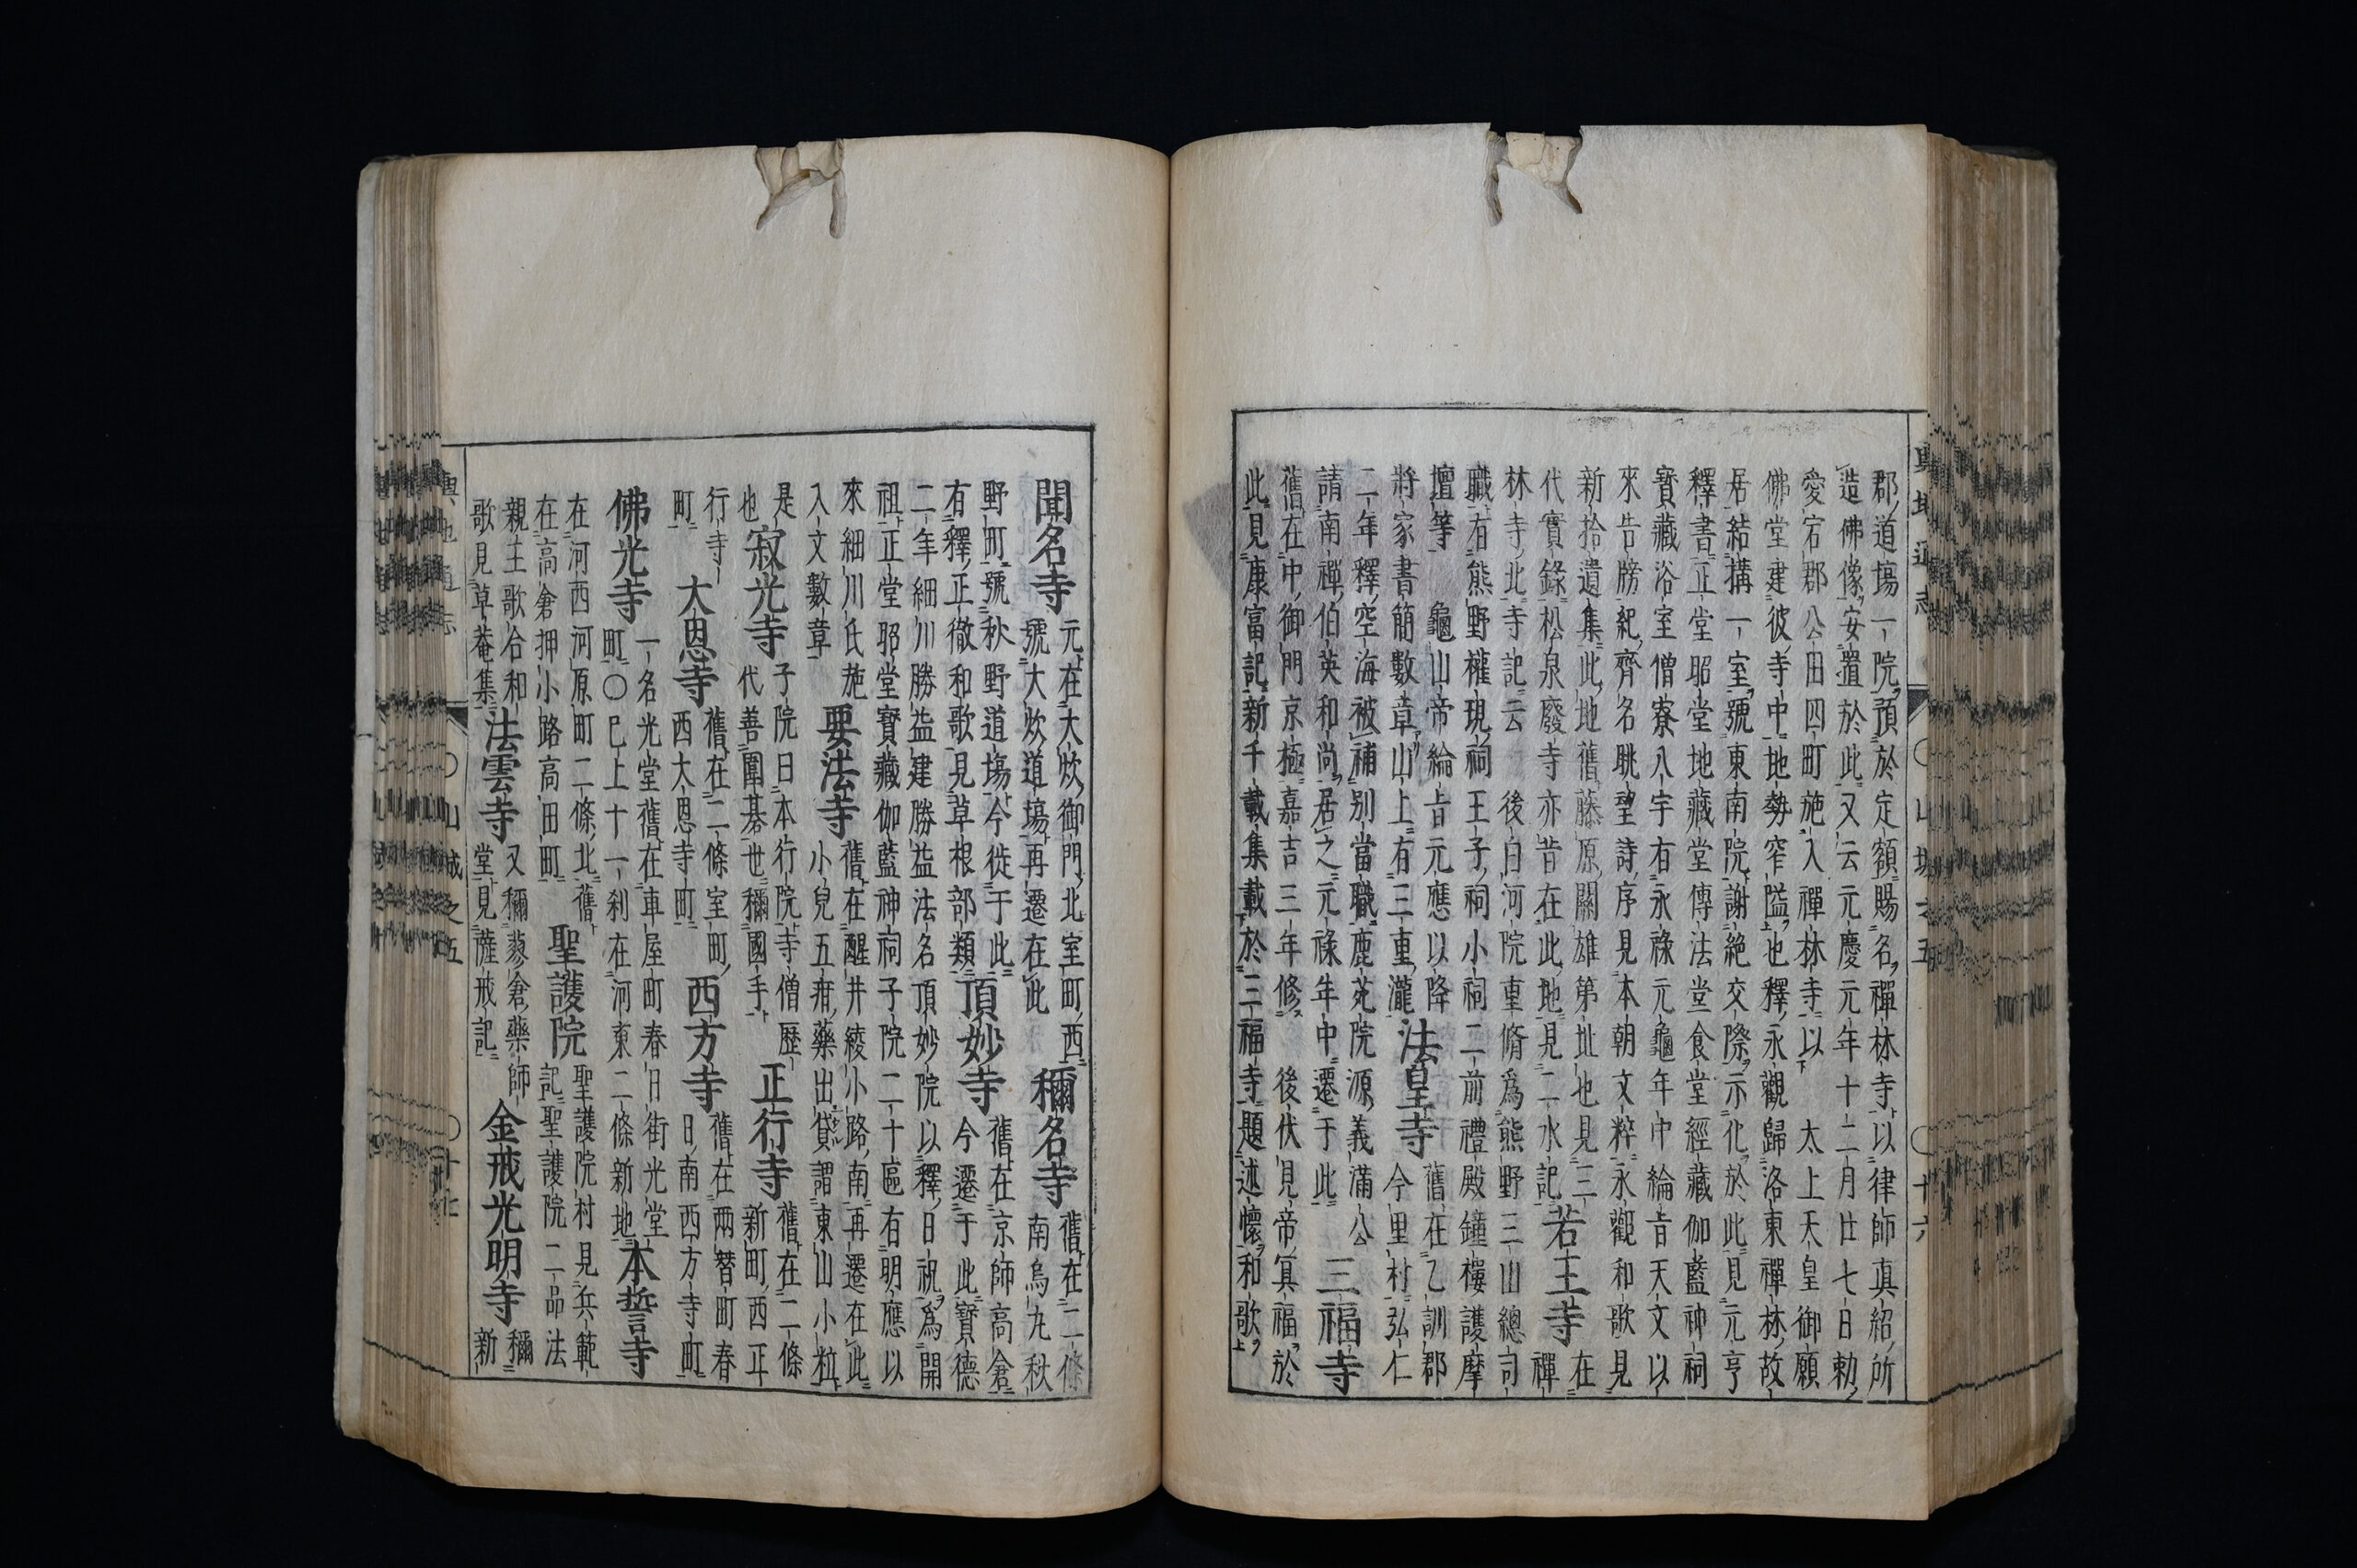 輿地通志 〇山城之五 〇十六
郡道場一院預於定額賜名禪林寺以律師眞紹所
造佛像安置於此又云元慶元年十二月廿七日勅
愛宕郡公田四町施入禪林寺以 太上天皇御願
佛堂建彼寺中地勢窄隘也釋永觀歸洛東禪林故
居結構一室號東南院謝絶交際示化於此見元亨
釋書正堂昭堂地藏堂傳法堂食堂經藏伽藍神祠
寳藏浴室僧寮八宇有永祿元龜年中綸旨天文以
來告牓紀齊名眺望詩序見本朝文粹永觀和歌見
新拾遺集此地舊藤原關雄第址也見三
代實錄松泉廢寺亦昔在此地見二水記
若王寺
在
禪
林寺北寺記云 後白河院重脩爲熊野三山總司
職有熊野權現祠王子祠小祠二前禮殿鐘樓護摩
壇等 龜山帝綸旨元應以降
將家書簡數章山上有三重瀧
法皇寺
舊在乙訓郡
今里村弘仁
二年釋空海被補別當職鹿苑院源義滿公
請南禪伯英和尚居之元祿年中遷于此
三福寺
舊在中御門京極嘉吉三年修 後伏見帝冥福於
此見康富記新千載集載於三福寺題述懷和歌
聞名寺
元在大炊御門北室町西
號大炊道場再遷在此
彌名寺
舊在二條
南烏丸秋
野町號秋野道場今徙于此
有釋正徹和歌見草根部類
頂妙寺
舊在京師高倉
今遷于此寳德
二年細川勝益建勝益法名頂妙院以釋日祝爲開
祖正堂昭堂寳藏伽藍神祠子院二十區有明應以
來細川氏施
入文數章
要法寺
舊在醒井綾小路南再遷在此
小兒五疳藥出貸謂東山小粒
是
也
寂光寺
子院曰本行院寺僧歷
代善圍碁世稱國手
正行寺
舊在二條
新町西正
行寺
町
大恩寺
舊在二條室町
西大恩寺町
西方寺
舊在兩替町春
日南西方寺町
佛光寺
一名光堂舊在車屋町春日街光堂
町〇已上十一刹在河東二條新地
本誓寺
在河西河原町二條北舊
在高倉押小路高田町
聖護院
聖護院村見兵範
記聖護院二品法
親王歌合和
歌見草菴集
法雲寺
又稱蓼倉藥師
堂見薩戒記
金戒光明寺
稱
新
輿地通志 〇山城之五 〇十七